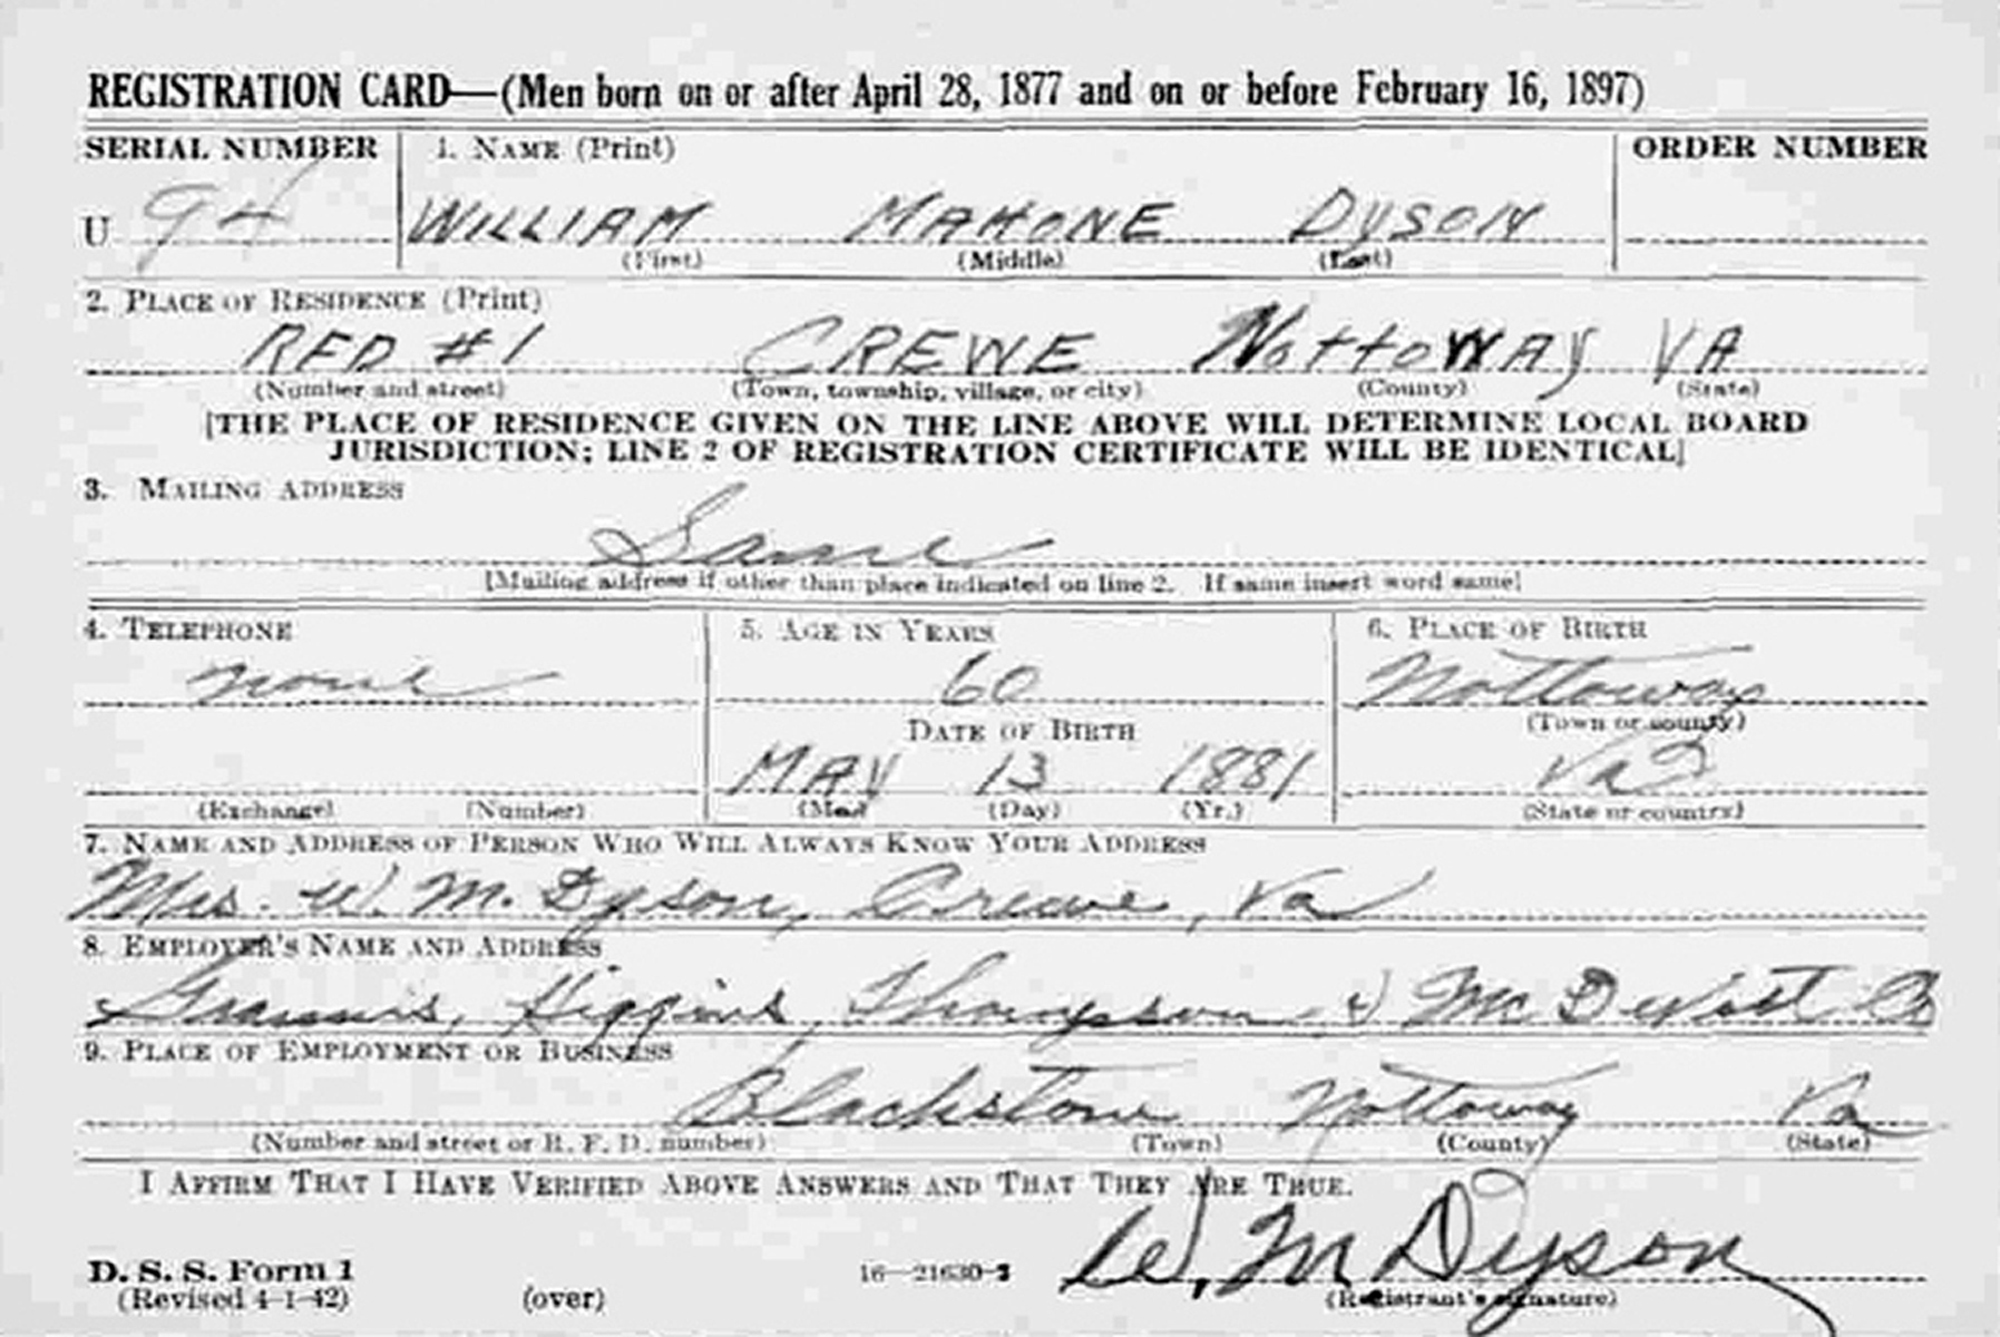 REGISTRATION CARD—(Men born on or after April 28, 1877 and on or before February 16, 1897)
SERIAL NUMBER 1. NAME (Print) ORDER NUMBER
U 94 WILLIAM MAHONE DYSON
(First) (Middle) (Last)
2. PLACE OF RESIDENCE (Print)
RFD #1 CREWE NottoWAY VA
(Number and street) (Town, township, village, or city) (County) (State)
[THE PLACE OF RESIDENCE GIVEN ON THE LINE ABOVE WILL DETERMINE LOCAL BOARD
JURISDICTION; LINE 2 OF REGISTRATION CERTIFICATE WILL BE IDENTICAL]
3. MAILING ADDRESS
Same
[Mailing address if other than place indicated on line 2. If same insert word same]
4. TELEPHONE 5. AGE IN YEARS 6. PLACE OF BIRTH
none 60 Nottoway
(Town or county)
DATE OF BIRTH
MAY 13 1881 Va
(Exchange) (Number) (Mo.) (Day) (Yr.) (State or country)
7. NAME AND ADDRESS OF PERSON WHO WILL ALWAYS KNOW YOUR ADDRESS
Mrs. W. M. Dyson, Crewe, Va
8. EMPLOYER'S NAME AND ADDRESS
Grannis, Higgins, Thompson & McDevitt Co
9. PLACE OF EMPLOYMENT OR BUSINESS
Blackstone Nottoway Va
(Number and street or R. F. D. number) (Town) (County) (State)
I AFFIRM THAT I HAVE VERIFIED ABOVE ANSWERS AND THAT THEY ARE TRUE.
W. M Dyson
D. S. S. Form 1
(Revised 4-1-42) (over) 16—21630-2 (Registrant's signature)